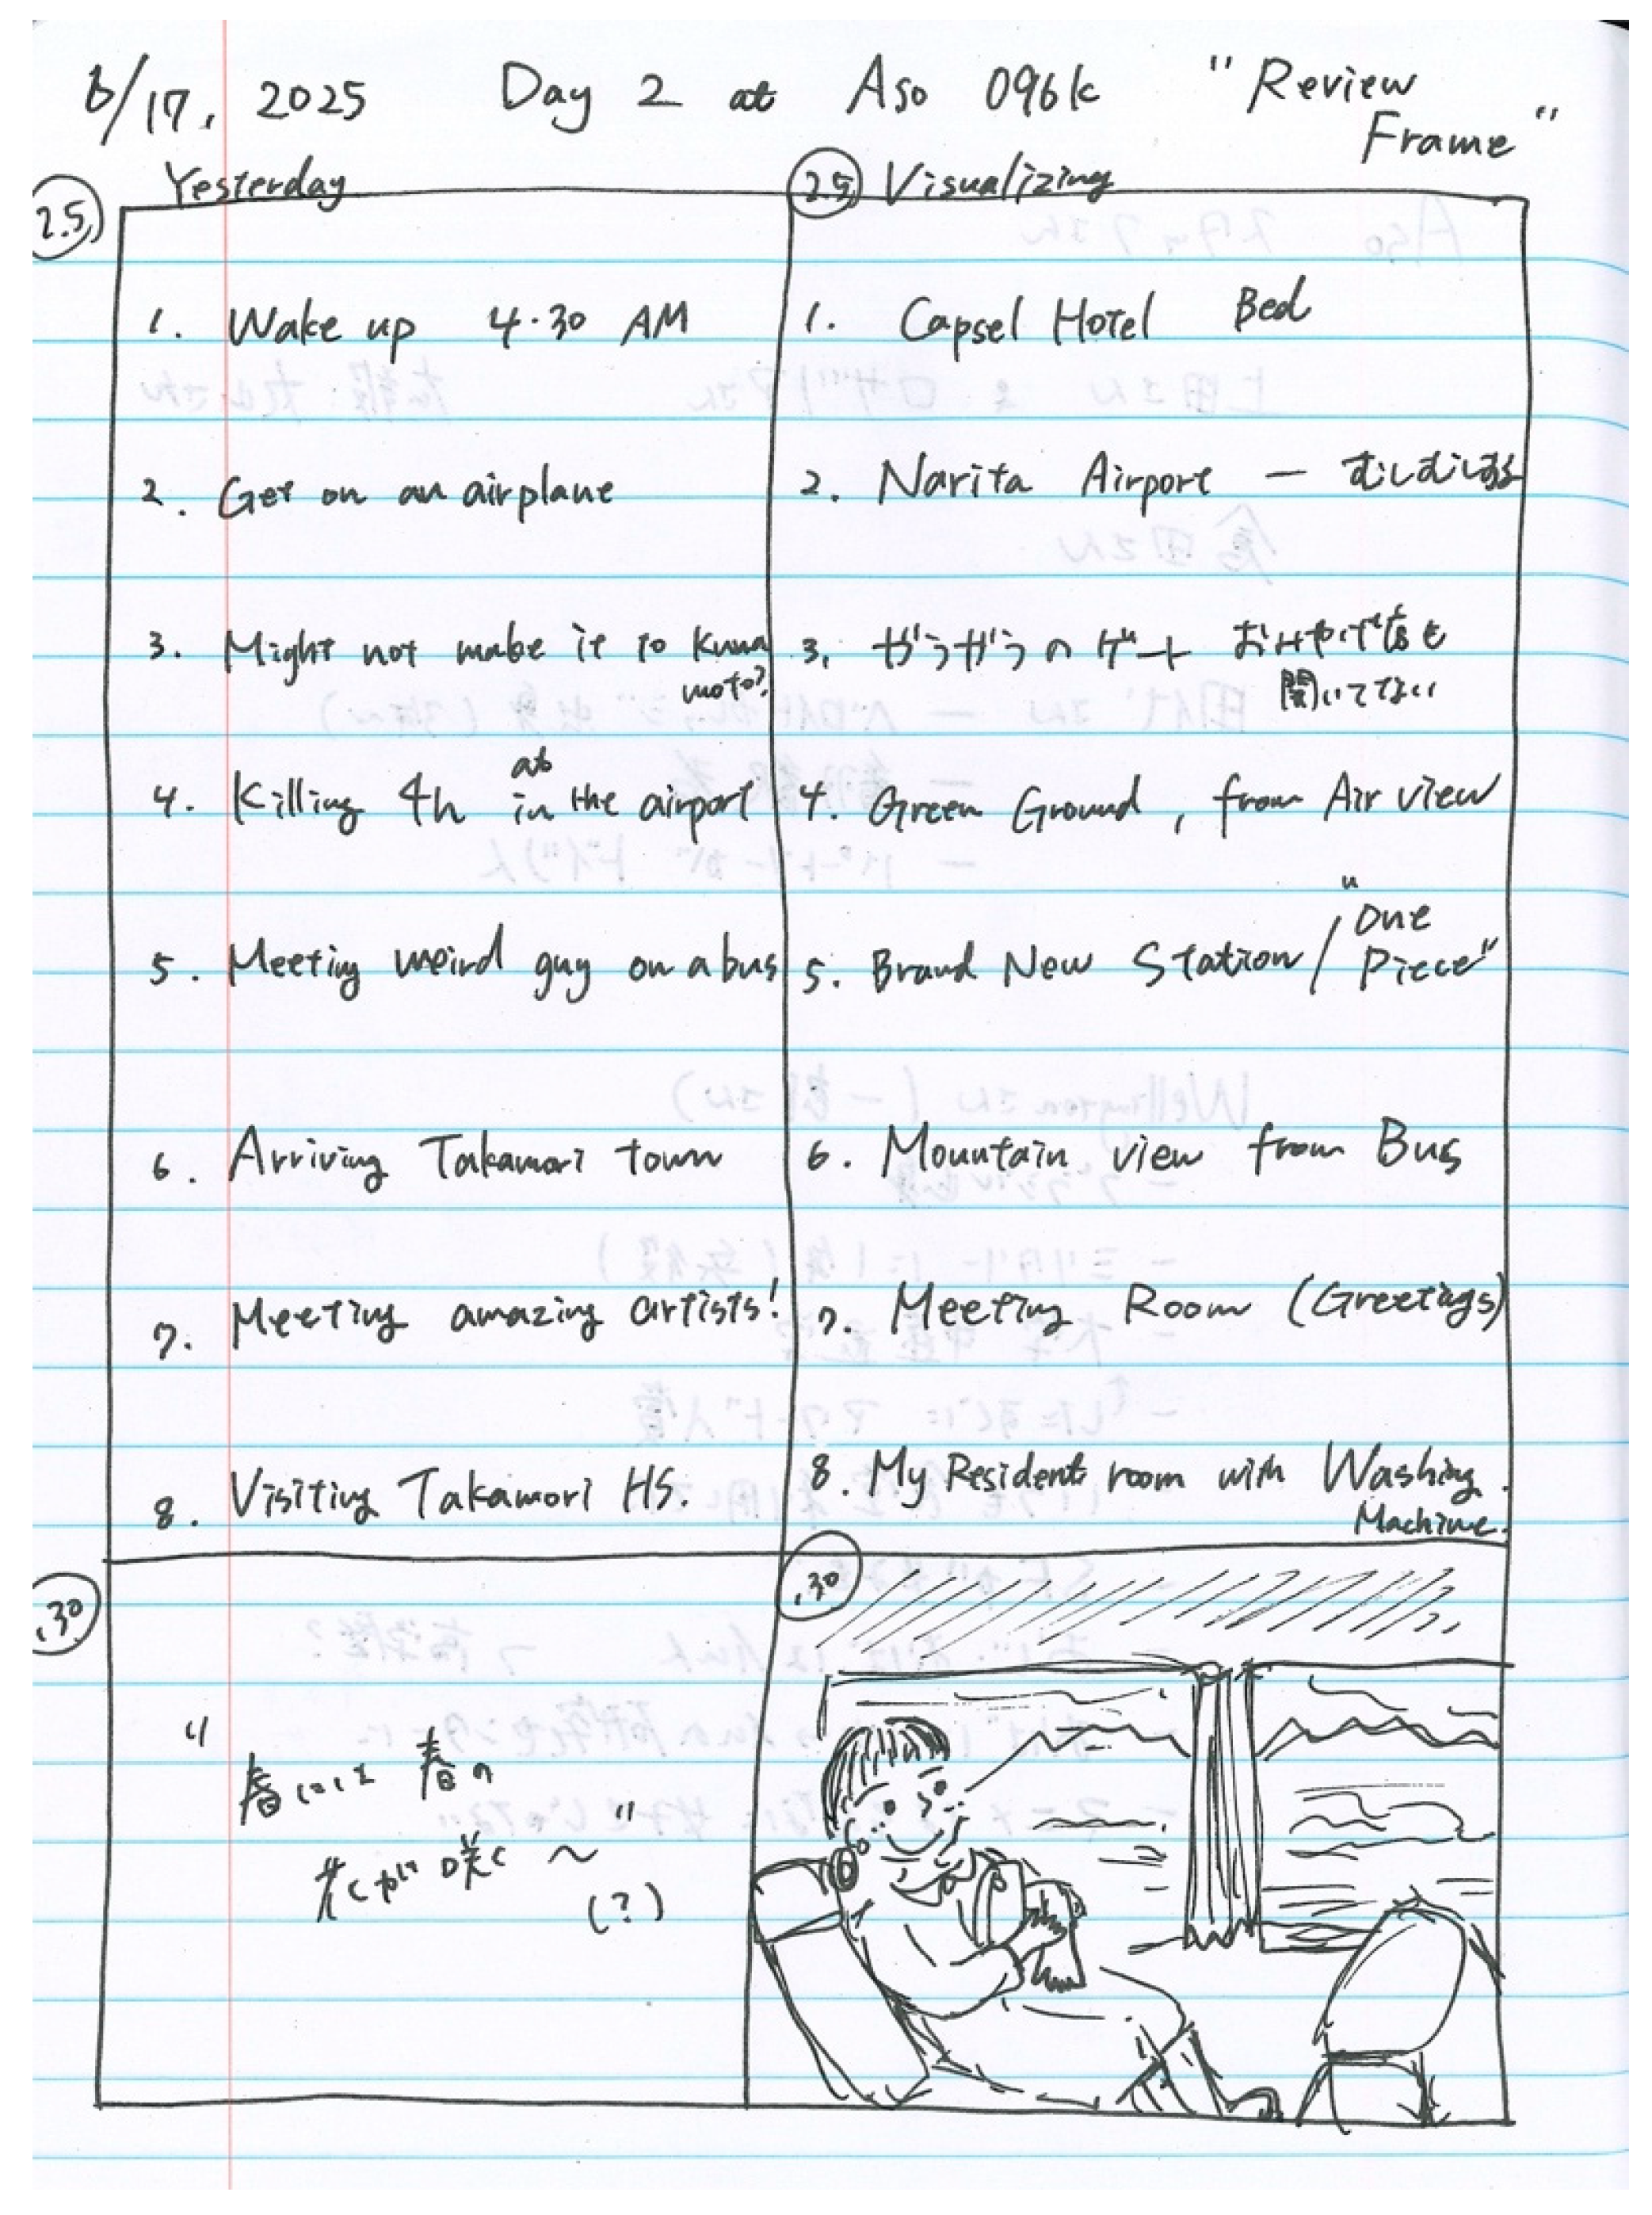 6/17, 2025 Day 2 at Aso 096k "Review Frame"
2.5 Yesterday
1. Wake up 4:30 AM
2. Get on an airplane
3. Might not make it to Kuma
moto?
4. Killing 4h in the airport
at
5. Meeting weird guy on a bus
6. Arriving Takamori town
7. Meeting amazing artists!
8. Visiting Takamori HS.
2.5 Visualizing
1. Capsel Hotel Bed
2. Narita Airport — むしむしする
3. ガラガラのゲート おみやげ店も
開いてない
4. Green Ground, from Air view
5. Brand New Station / "One
Piece"
6. Mountain view from Bus
7. Meeting Room (Greetings)
8. My Resident room with Washing
Machine.
.30
"春には春の
花が咲く〜"
(?)
.30